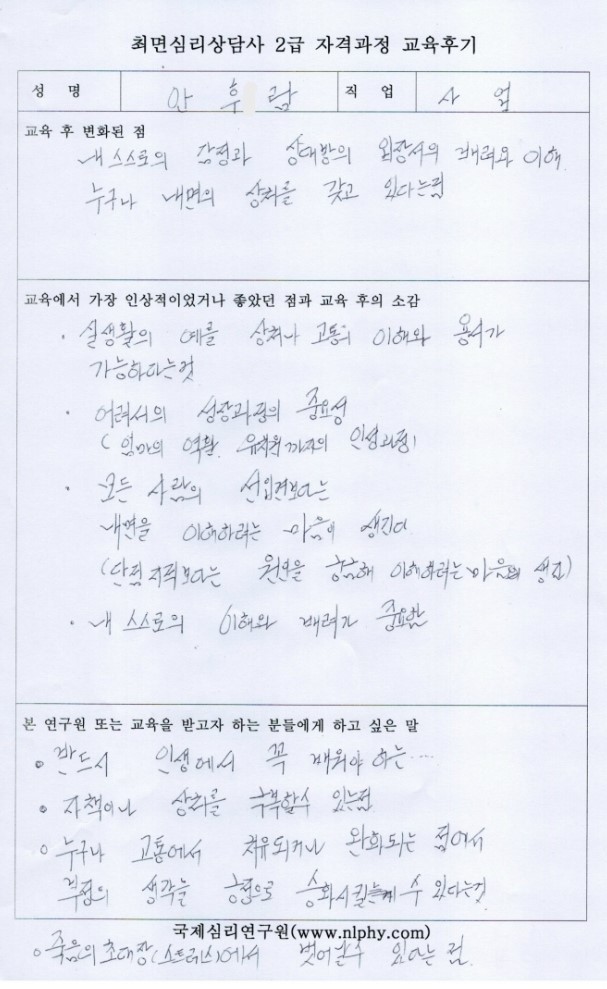 최면심리상담사 2급 자격과정 교육후기
성 명 안 후 람 직 업 사 업
교육 후 변화된 점
내 스스로의 감정과 상대방의 입장서의 배려와 이해.
누구나 내면의 상처를 갖고 있다는점
교육에서 가장 인상적이었거나 좋았던 점과 교육 후의 소감
· 실생활의 예를 상처나 고통의 이해와 용서가
가능하다는것
· 어려서의 성장과정의 중요성
( 엄마의 역활. 유치원까지의 인성과정)
· 모든 사람의 선입견보다는
내면을 이해하려는 마음이 생긴다
(단점 지적보다는 원인을 이해하려는 마음이 생김)
· 내 스스로의 이해와 배려가 중요함
본 연구원 또는 교육을 받고자 하는 분들에게 하고 싶은 말
○ 반드시 인생에서 꼭 배워야 하는····
○ 자책이나 상처를 극복할수 있는점
○ 누구나 고통에서 치유되거나 완화되는 점에서
생각을 승화시킬 수 있다는것
국제심리연구원(www.nlphy.com)
○ 죽음의 초대장(스트레스)에서 벗어날수 있다는 점.